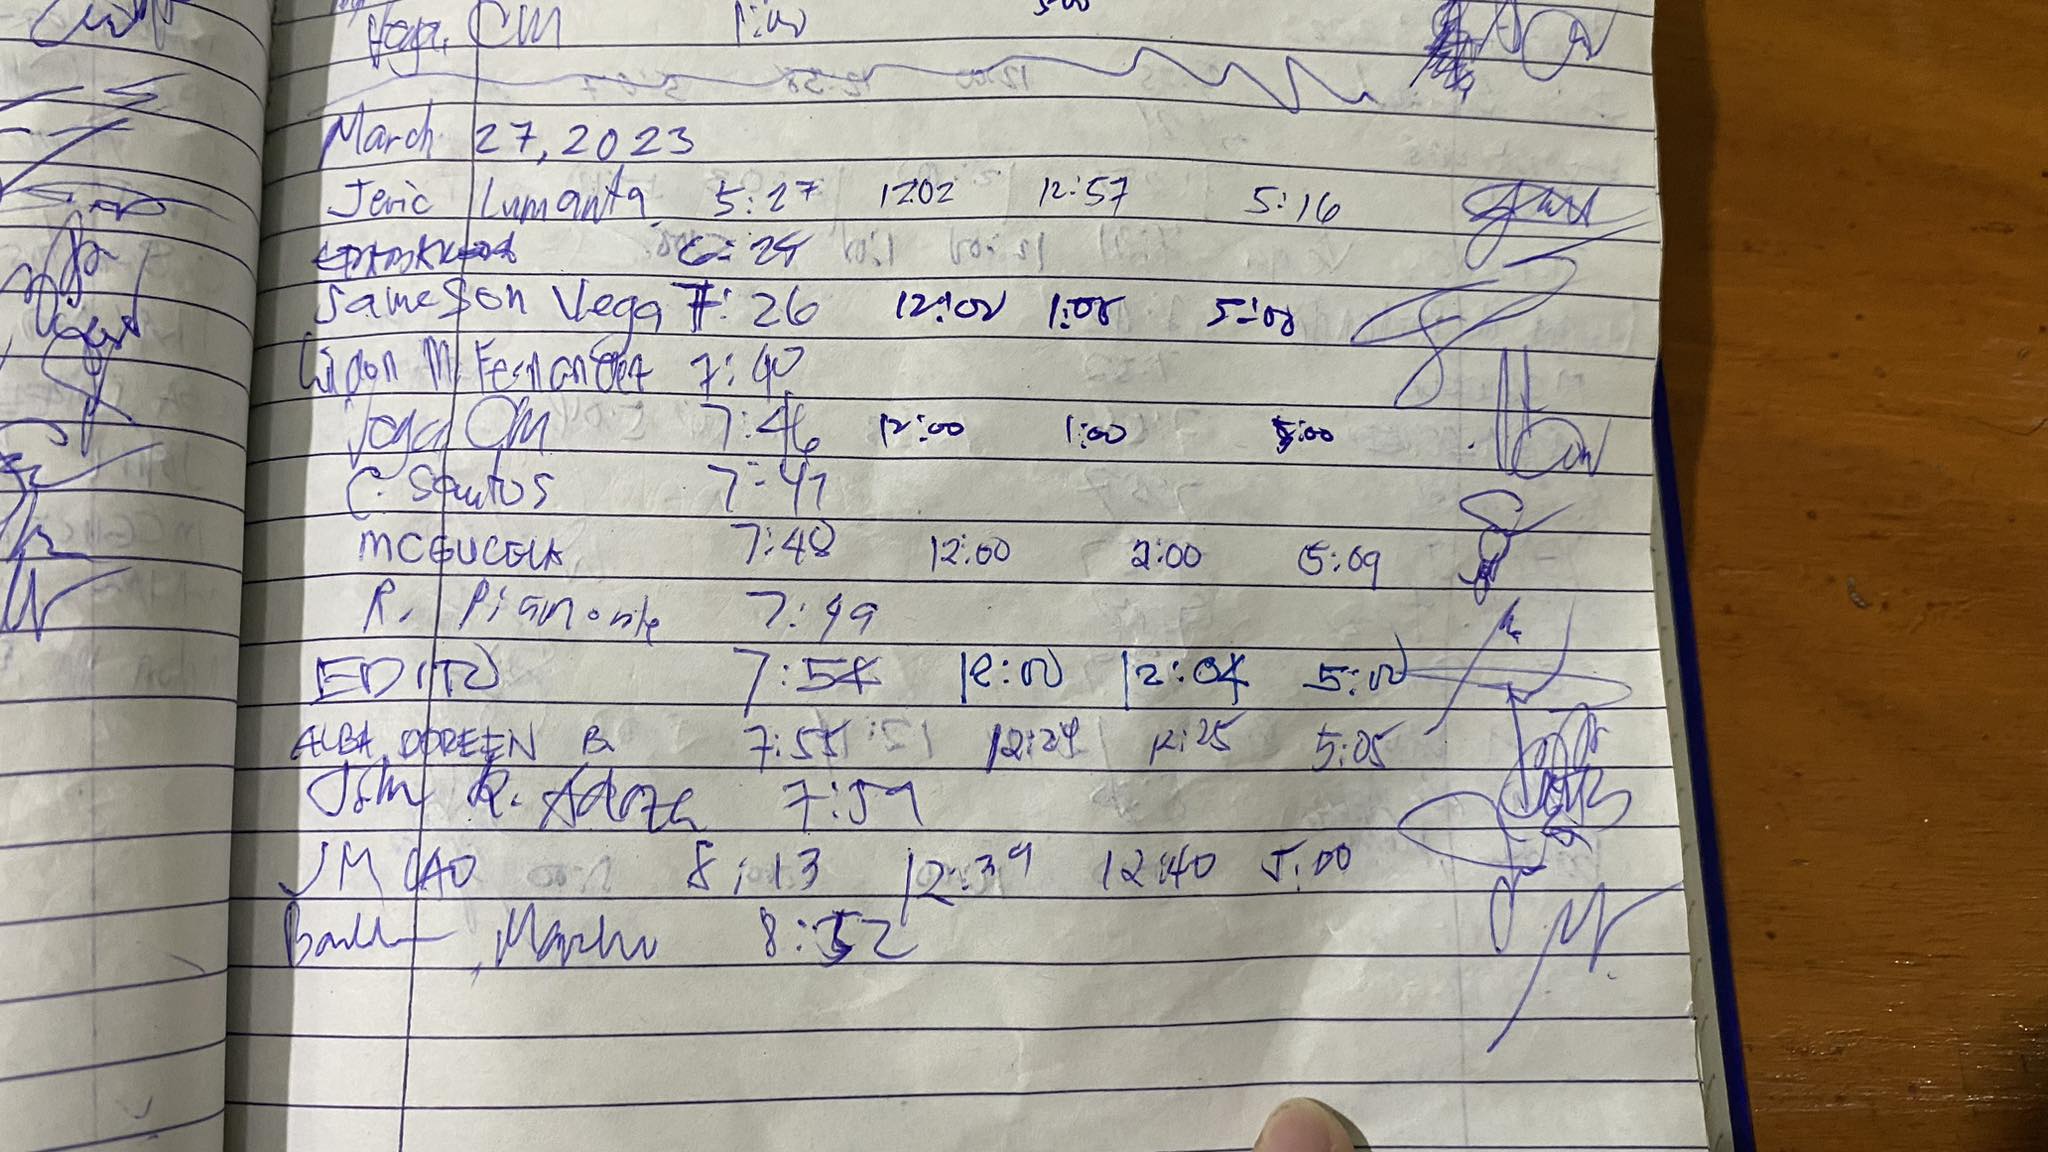 Vega, CM 1:00 5:00
March 27, 2023
Jeric Lumanta 5:27 1202 12:57 5:16
6:24
Jameson Vega 7:26 12:00 1:00 5:00
M. Fernandez 7:40
Vega CM 7:46 12:00 1:00 5:00
C. Santos 7:47
7:48 12:00 2:00 5:09
R. 7:49
EDITO 7:54 12:00 12:04 5:00
ALBA, DOREEN B. 7:55 12:24 12:25 5:05
John R. 7:59
JM CAO 8:13 12:39 12:40 5:00
8:52